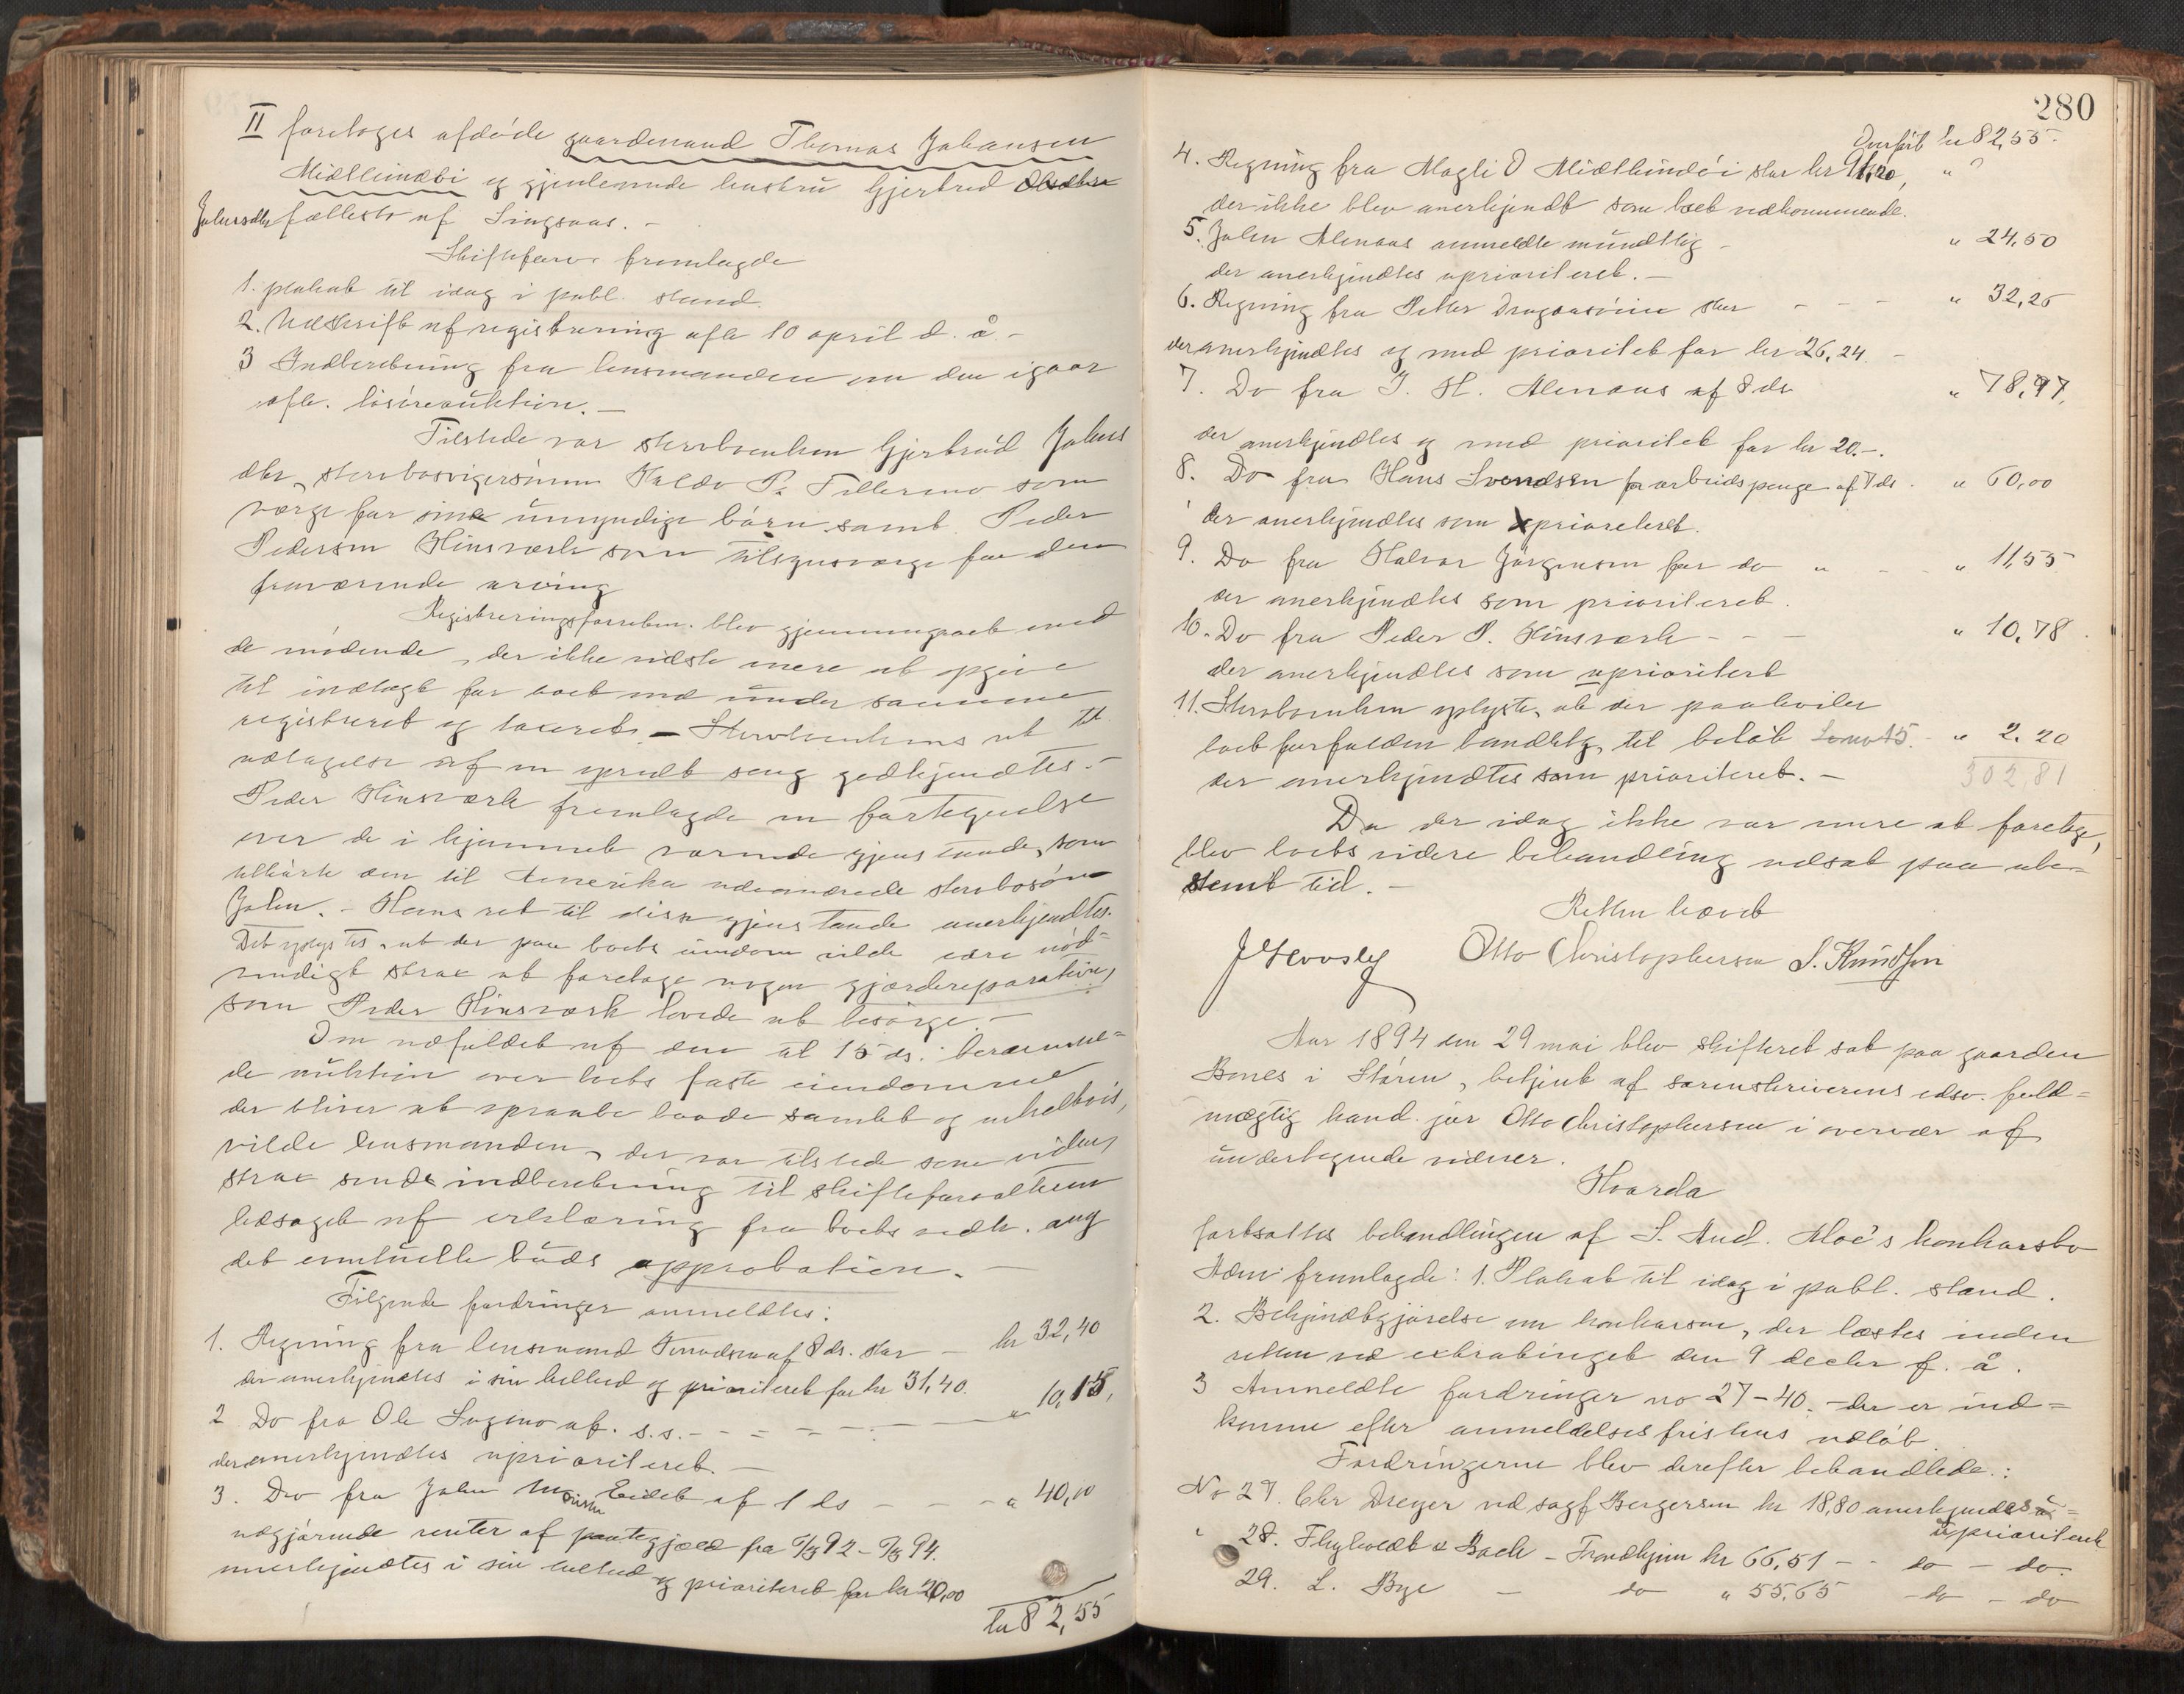 II foretoges afdøde gaardmand Thomas Johansen
Midtlimdøi og gjenlevende hustru Gjertrud
Johnsdtr fællesbo af Singsaas. -
Skifteforv. fremlagde
1. plakat til idag i publ. stand.
2. Udskrift af registrering afh. 10 april d. å. -
3 Indberetning fra lensmanden om den igaar
afh. løsøreauktion. -
Tilstede var sterboenken Gjertrud Johns
dtr, sterbosvigersønnen Haldo P. Tellesmo som
værge for sine umyndige børn samt Peder
Pedersen Kinsværk som tilsynsværge for den
fraværende arving
Registreringsforretn. blev gjennemgaaet med
de mødende, der ikke vidste mere at opgive
til indtægt for boet end under samme
registreret og taxeret. - Sterboenkens ret til
udtagelse af en opredt seng godkjendtes. -
Peder Kinsværk fremlagde en fortegnelse
over de i hjemmet værende gjenstande, som
tilhørte den til Amerika udvandrede sterbosøn
John. - Hans ret til disse gjenstande anerkjendtes.
Det oplystes, at der paa boets eiendom vilde være nød=
vendigt strax at foretage nogen gjærdereparation,
som Peder Kinsværk lovede at besørge. -
Om udfaldet af den til 15 ds. beramme=
de auktion over boets faste eiendomme
der bliver at opraabe baade samlet og enkeltvis,
vilde lensmanden, der var tilstede som vidne,
strax sende indberetning til skifteforvalteren
ledsaget af erklæring fra boets vedk. ang
det eventuelle buds approbation. -
Følgende fordringer anmeldtes:
1. Regning fra lensmand af 8 ds. stor - kr 32,40
der anerkjendtes i sin helhed og prioriteret for kr 31,40.
2 Do fra Ole Sugmo af. s.s. - - - - - " 10,15,
der anerkjendtes uprioriteret. -
3. Do fra John Eidet af 1 ds - - - " 40,00
udgjørende renter af pantegjæld fra 92 - 94.
anerkjendtes i sin helhed og prioriteret for kr 20,00
kr 82,55
280
Overført kr 82,55.
4. Regning fra Magli O Midtlimdøi stor kr 91,20, "
der ikke blev anerkjendt som boet vedkommende.
5. John Alenaas anmeldte mundtlig - " 24,50
der anerkjendtes uprioriteret. -
6. Regning fra Petter Dragaasøine stor - - - " 32,26
der anerkjendtes og med prioritet for kr 26,24. -
7. Do fra J. H. Alenaas af 8 ds " 78,97,
der anerkjendtes og med prioritet for kr 20.-.
8. Do fra Hans Svendsen for arbeidspenge af 7 ds. " 60,00
der anerkjendtes som prioriteret.
9. Do fra Halvor Jørgensen for do " - - " 11,55
der anerkjendtes som prioriteret.
10. Do fra Peder P. Kinsværk - - - " 10,78.
der anerkjendtes som uprioriteret
11. Sterboenken oplyste, at der paahviler
boet forfalden landhlg, til beløb " 2.20
der anerkjendtes som prioriteret. - 302 81
Da der idag ikke var mere at foretage,
blev boets videre behandling udsat paa ube=
stemt tid. -
Retten hævet
Otto Christophersen S. Knudsen
Aar 1894 den 29 mai blev skifteret sat paa gaarden
Bones i Støren, betjent af sorenskriverens edsv. fuld=
mægtig kand. jur Otto Christophersen i overvær af
undertegnede vidner.
Hvorda
fortsattes behandlingen af S. And. Moe's konkursbo
Adm. fremlagde: 1. Plakat til idag i publ. stand.
2. Bekjendtgjørelse om konkursen, der læstes inden
retten ved extratinget den 9 decbr f. å.
3 Anmeldte fordringer no 27-40. - der er ind=
komne efter anmeldelsesfristens udløb.
Fordringerne blev derefter behandlede:
No 27. Chr Dreyer ved sagf. Bergersen kr 18,80 anerkjendes
uprioriteret
" 28. & Bach - Trondhjem kr 66,51 - - do - do.
29. L. Bye - do " 55,65 - do - do